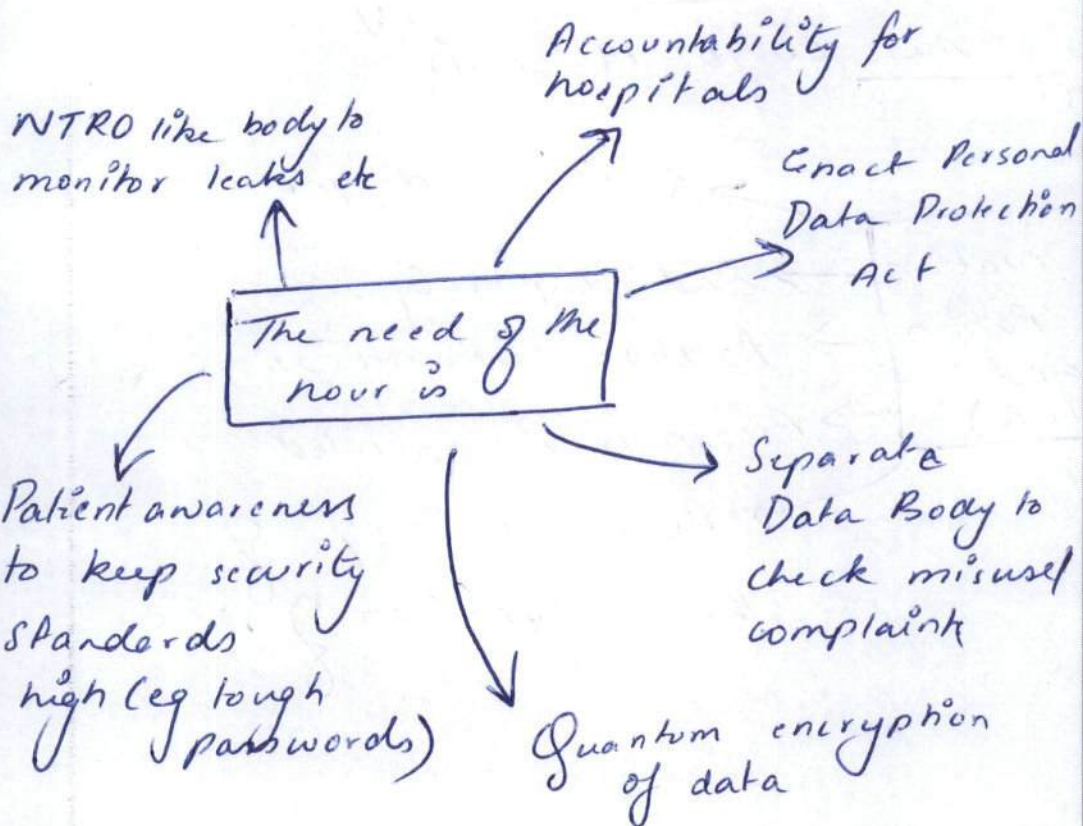 Accountability for
hospitals
NTRO like body to
monitor leaks etc
Enact Personal
Data Protection
Act
The need of the
hour is
Patient awareness
to keep security
standards
high (eg tough
passwords)
Separate
Data Body to
check misuse/
complaints
Quantum encryption
of data